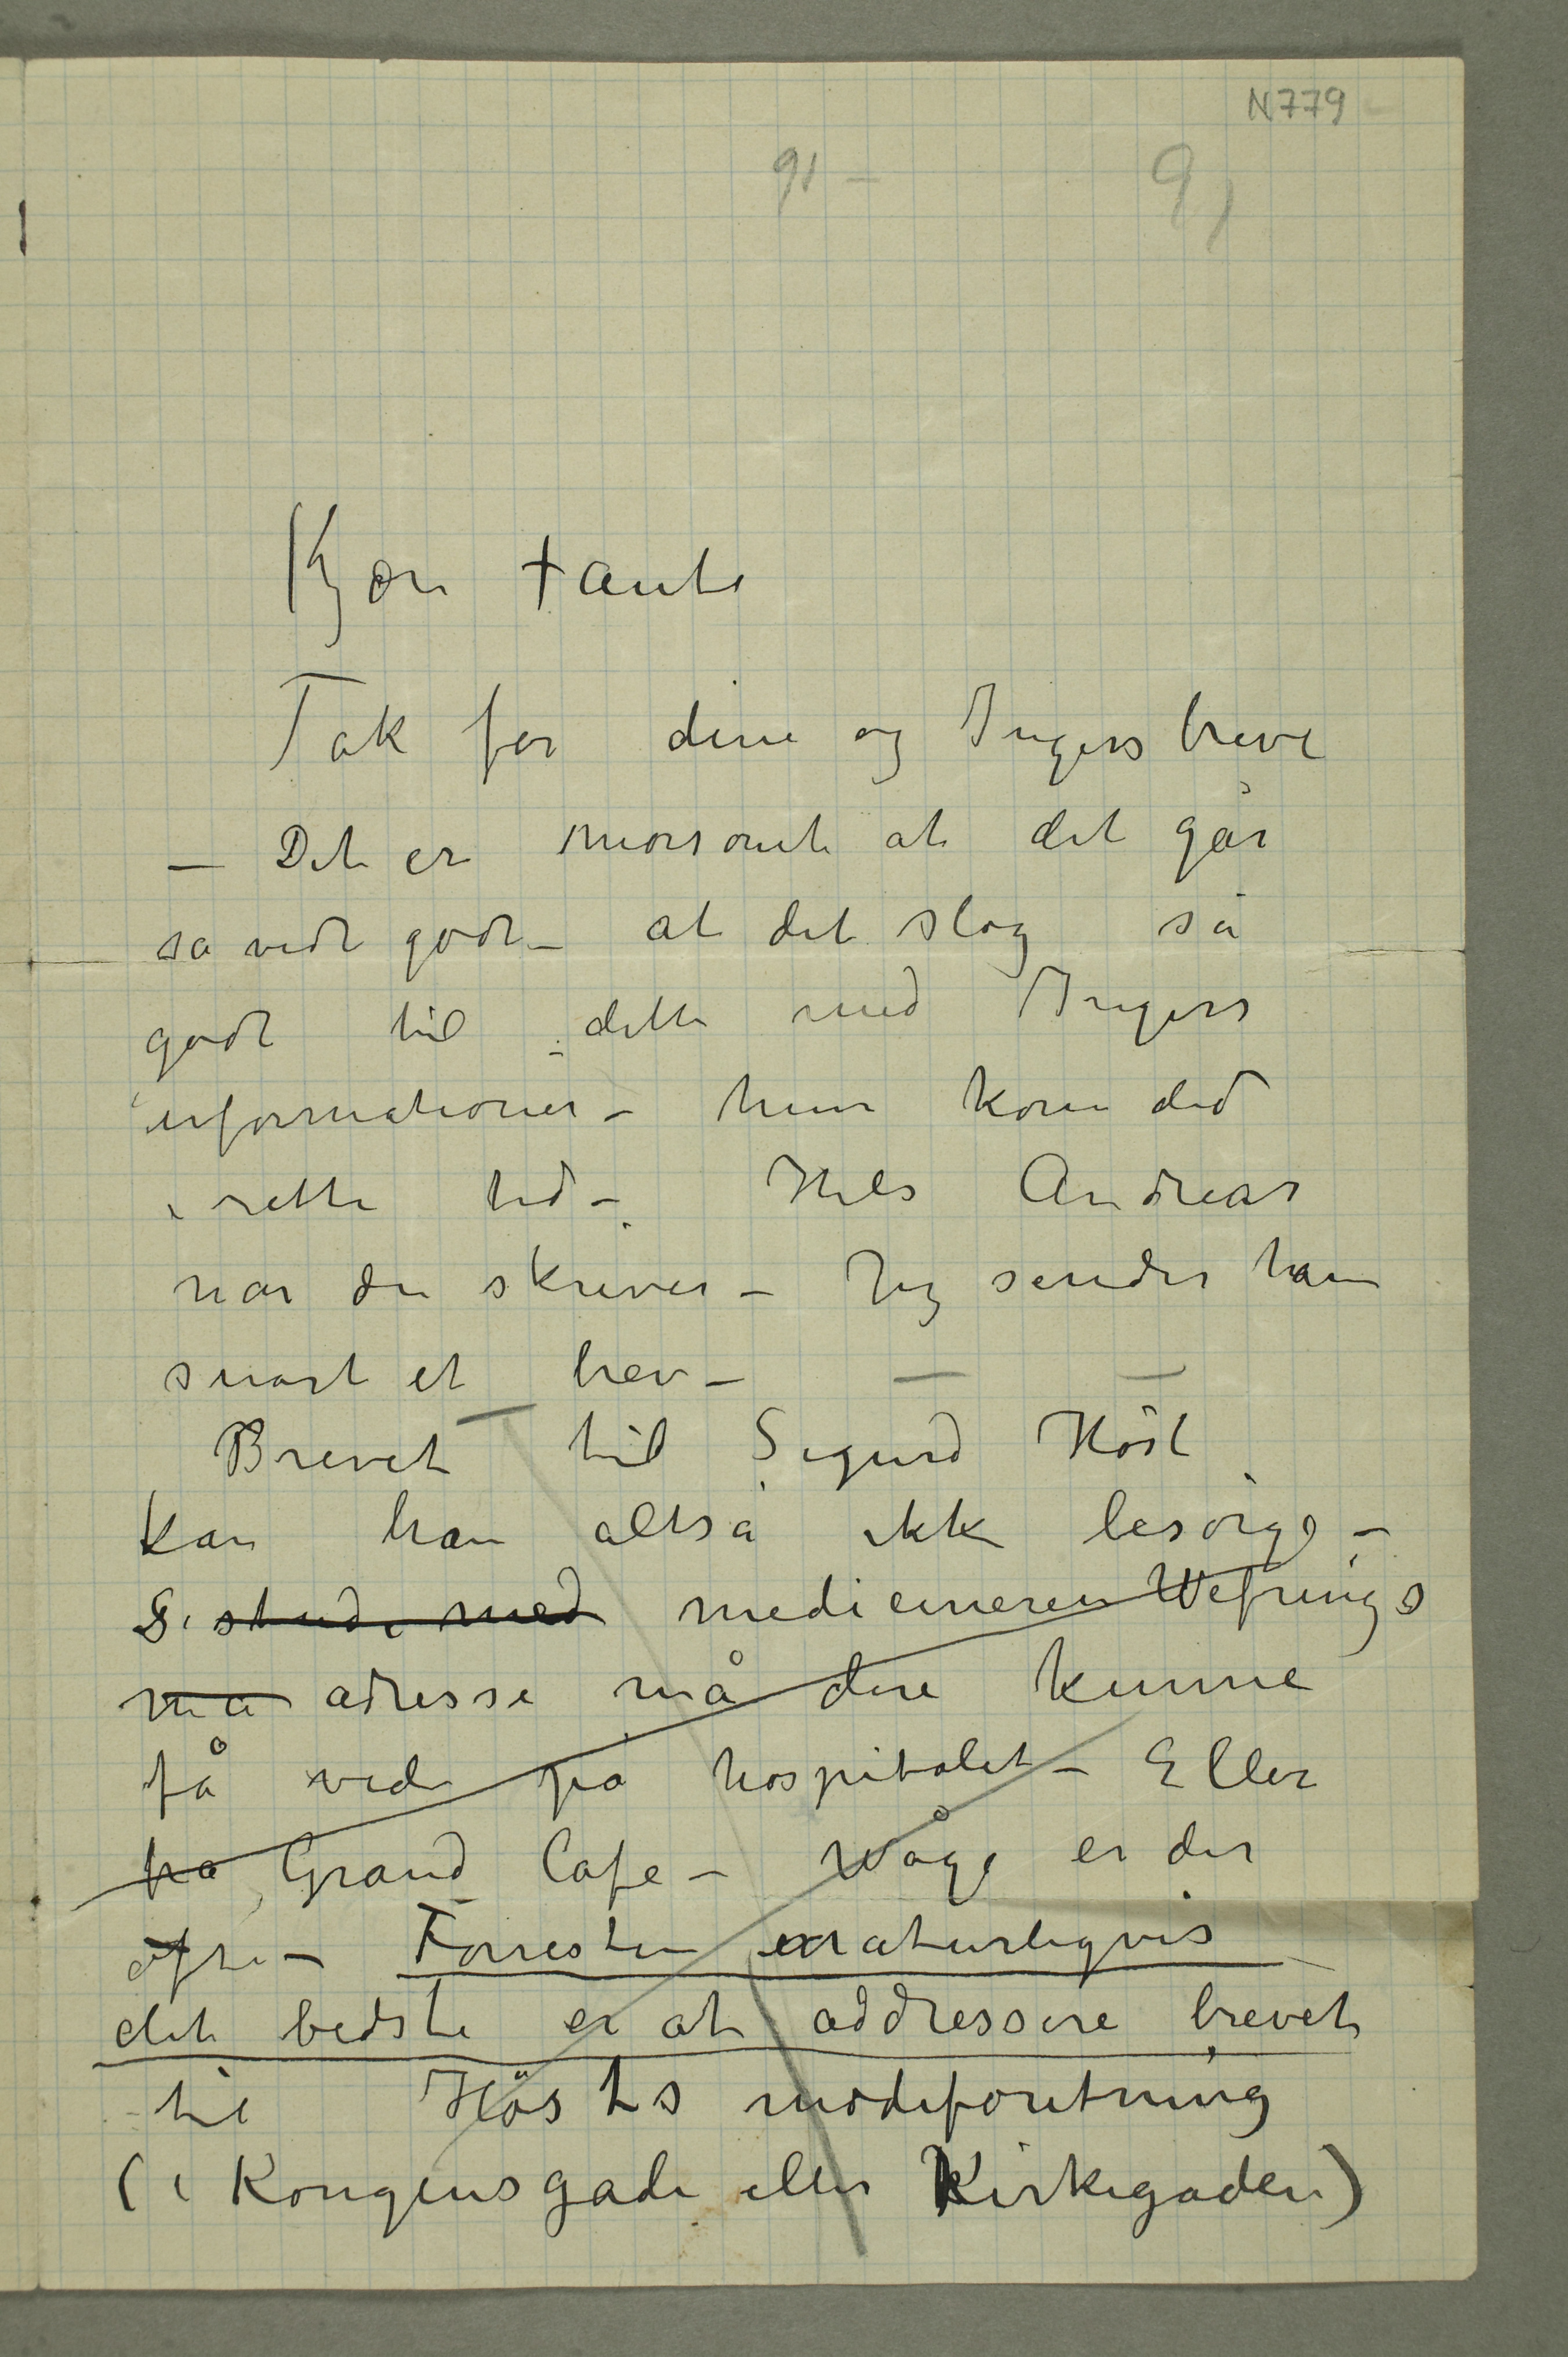 N779
91 –
91
Kjære tante
Tak for dine og Ingers breve
– Det er morsomt at det går
så vidt godt – at det slog så
godt til dette med Ingers
informationer – hun kom did
i rette tid – Hils Andreas
når du skriver – Jeg sender ham
snart et brev –
Brevet til Sigurd Høst
kan han altså ikke besørge –
stud. med medicineren Wefrings
må adresse må dere kunne
få vide på hospitalet – Eller
fra Grand Cafe – Våge er der
ofte – Forresten naturligvis
det bedste er at addressere brevet
til Høsts modeforetning
(i Kongensgade eller Kirkegaden)